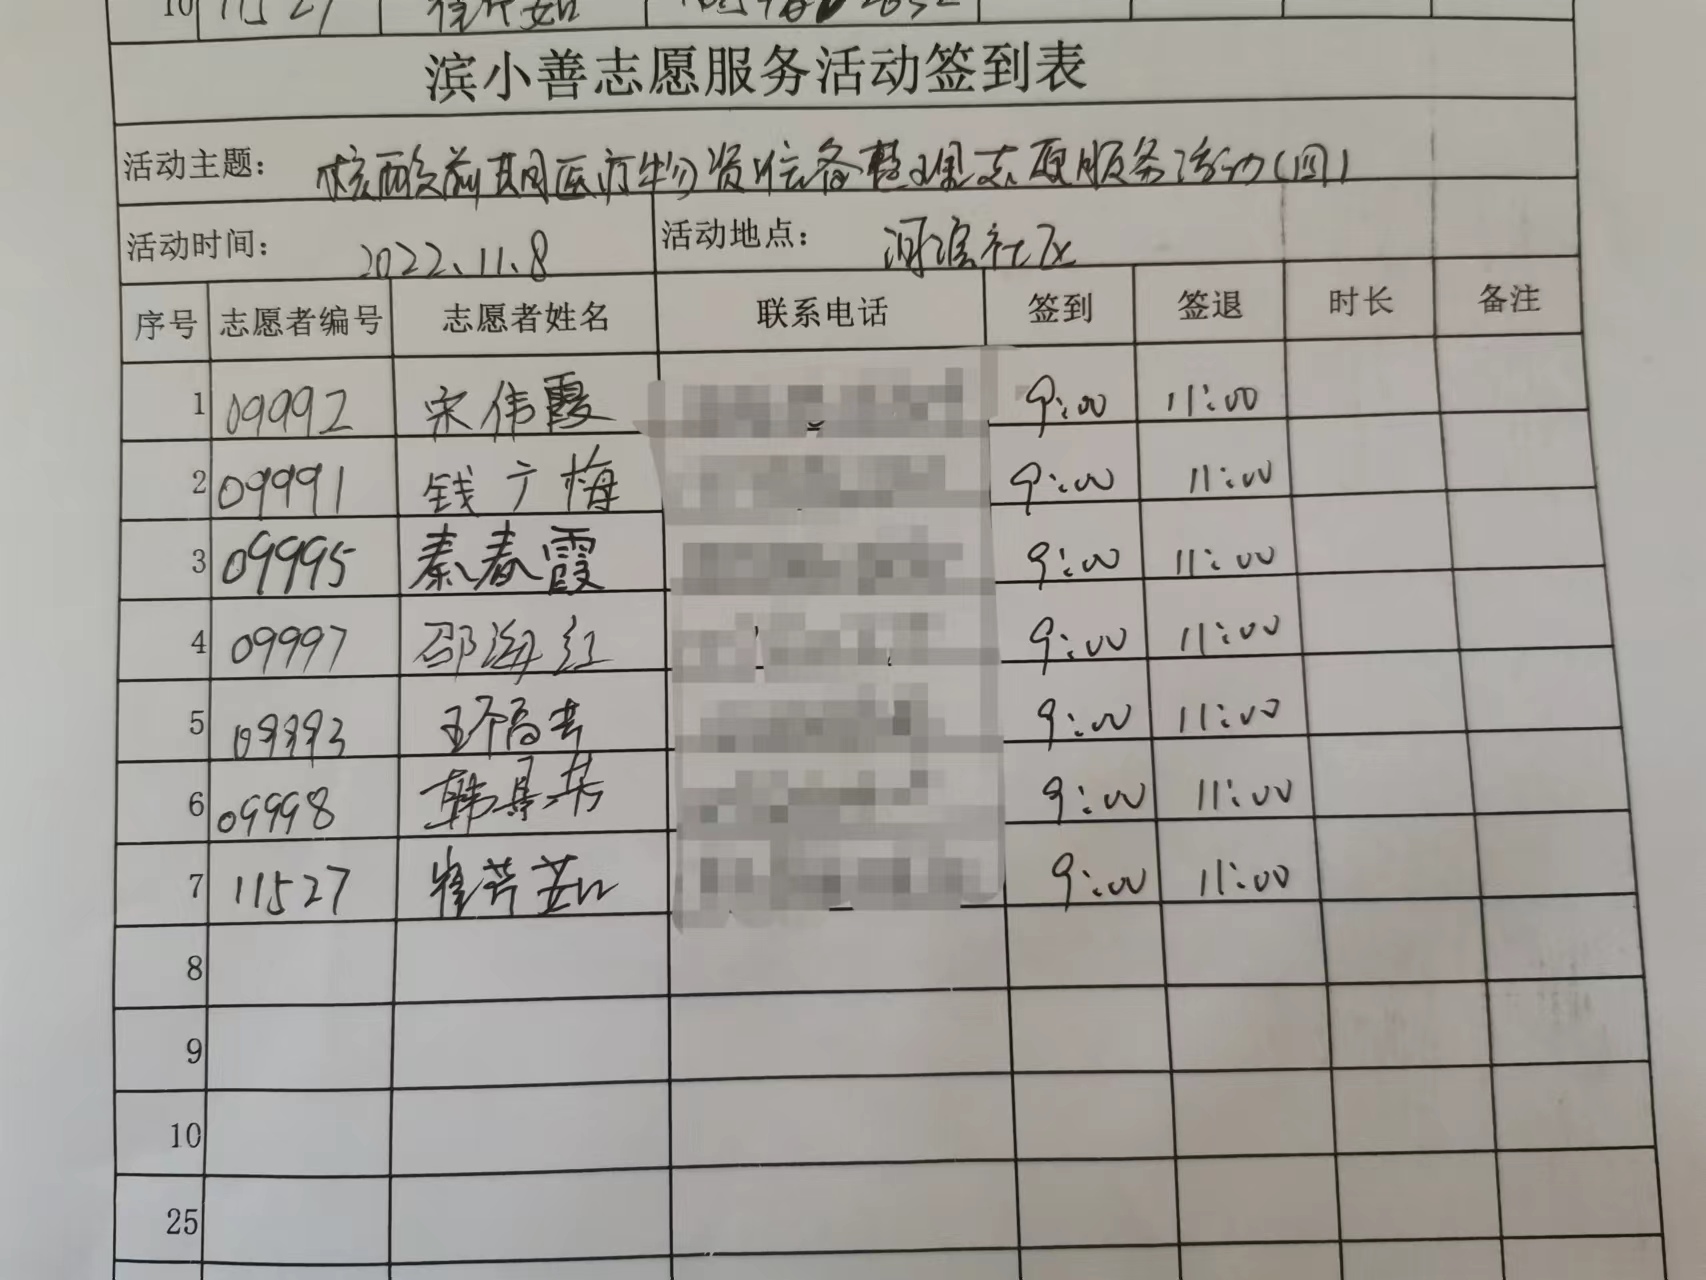 10 11527
滨小善志愿服务活动签到表
活动主题: 核酸前期医疗物资准备整理志愿服务活动(四)
活动时间: 2022.11.8 活动地点: 河滨社区
序号 志愿者编号 志愿者姓名 联系电话 签到 签退 时长 备注
1 09992 宋伟霞 9:00 11:00
2 09991 钱广梅 9:00 11:00
3 09995 秦春霞 9:00 11:00
4 09997 邵海红 9:00 11:00
5 09993 9:00 11:00
6 09998 韩景芬 9:00 11:00
7 11527 崔芹茹 9:00 11:00
8
9
10
25